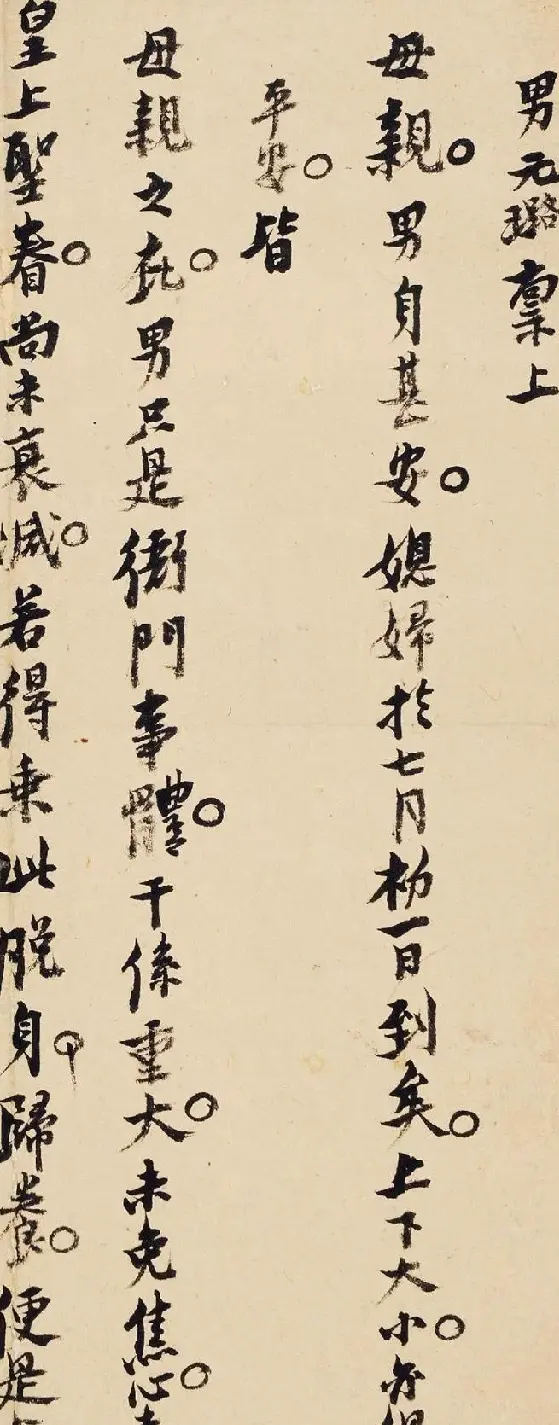 男元璐稟上
母親。男自甚安。媳婦於七月初一日到矣。上下大小。亦俱
平安。皆
母親之庇。男只是衙門事體。干係重大。未免焦心。
皇上聖眷。尚未衰減。若得乘此脫身。歸養。便是